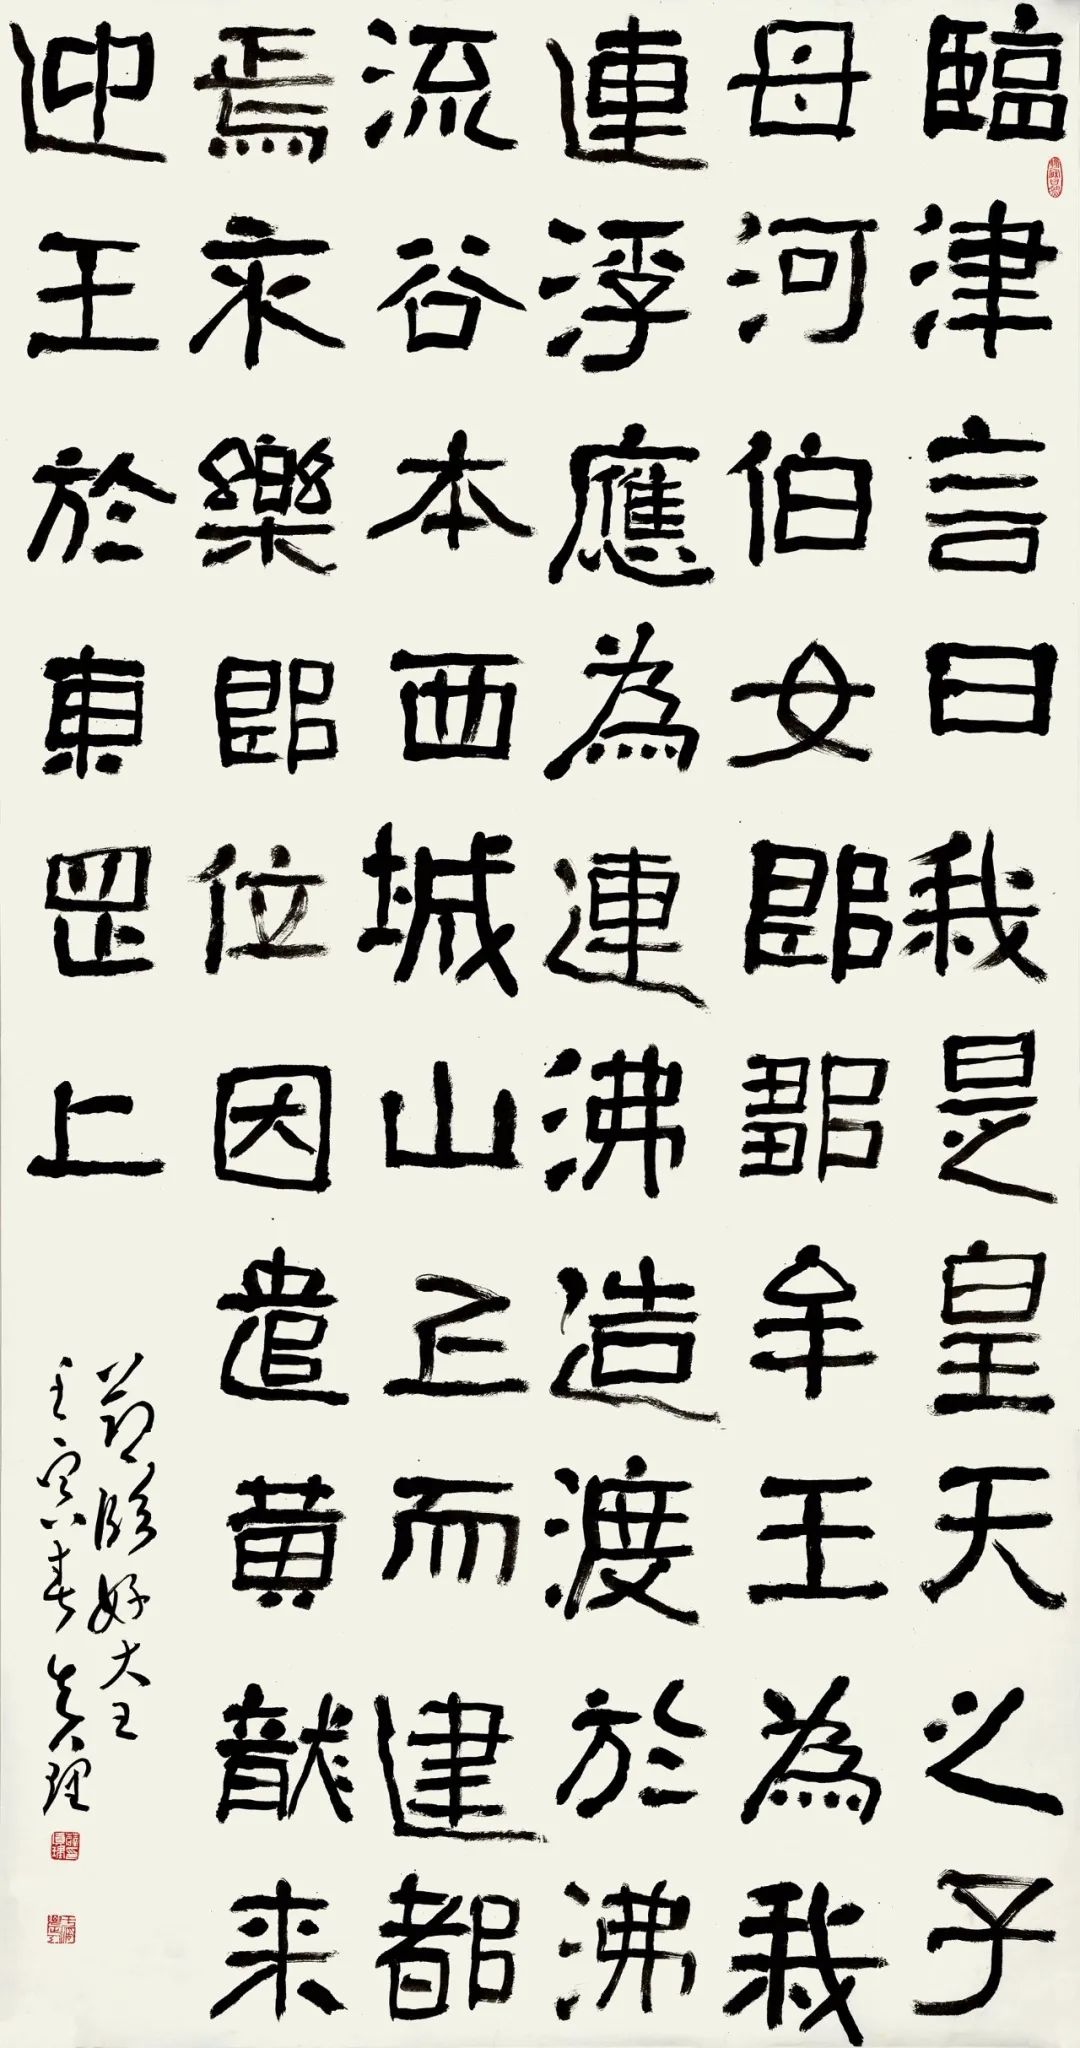 臨津言曰我是皇天之子
母河伯女郎鄒牟王為我
連浮應為連沸造渡於沸
流谷本西城山上而建都
焉永樂即位因遣黃龍来
迎王於東罡上
節臨好大王
壬寅春